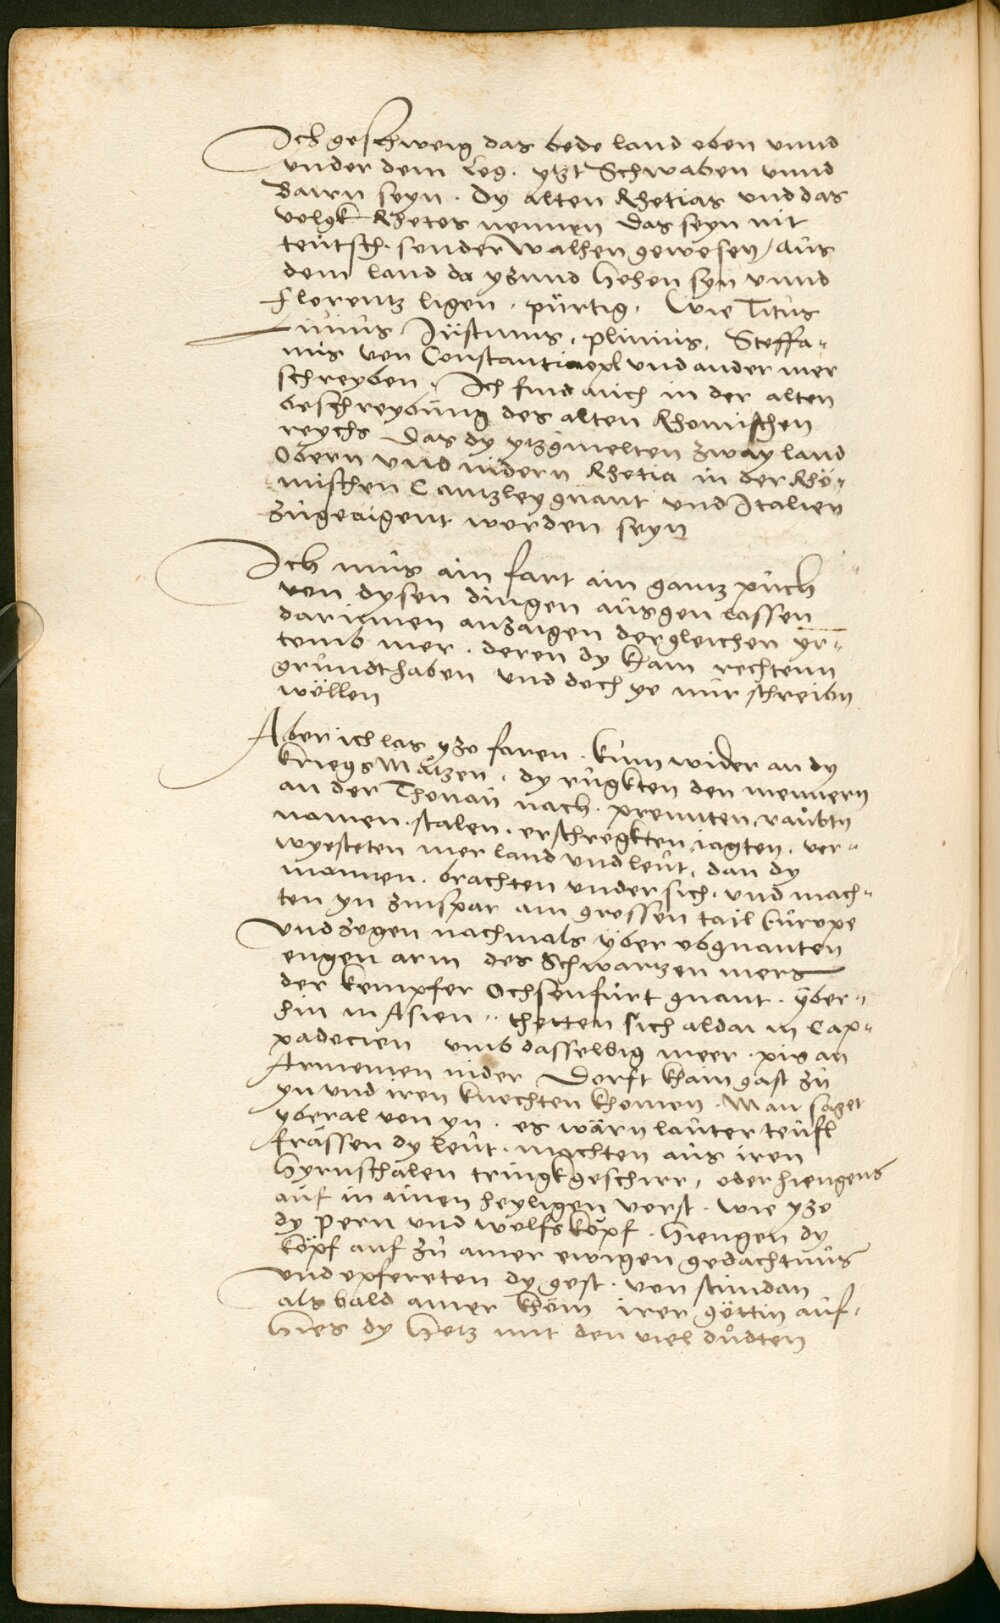 Ich geschweig das bede land oben vnnd
vnder dem Leg. ytzt Schwaben vnnd
Bairn seyn. Dy alten Rhetias vnd das
volgk Rhetos nennen das seyn nit
teutsch. sonder Walhen gewesen / aus
dem land da yzund Hohen syn vnnd
Florentz ligen. pürtig. Wie Titus
Liuius Iustinus, plinius, Steffa-
nus von Constantinopl vnd ander mer
schreyben. Ich find auch in der alten
beschreybung des alten Rhomischen
reychs Das dy ytzgmelten zway land
Obern vnd nidern Rhetia in der Rhö-
mischen Cantzley gnant vnd Italien
zugeaigent worden seyn
Ich mus ain fart ain gantz puch
von dysen dingen ausgen lassen
darinnen anzaigen dergleichen yr-
tomb mer. deren dy kain rechtenn
grundt haben vnd doch ye nur schreibn
wöllen
Aber ich las yzo faren. kum wider an dy
kriegs Mätzen. dy rugkten den mennern
an der Thonau nach. prennten, raubtn
namen. stalen. erschregkten, iagten. ver-
wyesteten mer land vnd leut, dan dy
mannen. brachten vnder sich. vnd mach-
ten yn zinspar ain grossen tail Europe
vnd zogen nachmals yber obgnanten
engen arm des Schwartzen mers
der kempfer Ochsenfurt gnant. yber-
hin in Asien. thetten sich aldai in Cap-
padocien vmb dasselbig meer. pis an
Armenien nider Dorft khain gast zu
yn vnd iren knechten khomen. Man saget
yberal von yn. es wärn lauter teufl
frässen dy leut. machten aus iren
Hyrnschalen tringkgeschirr, oder hiengens
auf in ainen heyligen vorst. wie yzo
dy pern vnd wolfs köpf. Hiengen dy
köpf auf zu ainer ewigen gedachtnus
vnd opfereten dy gest. von stundan
als bald ainer khöm irer göttin auf.
Hies dy Hetz mit den viel dudten